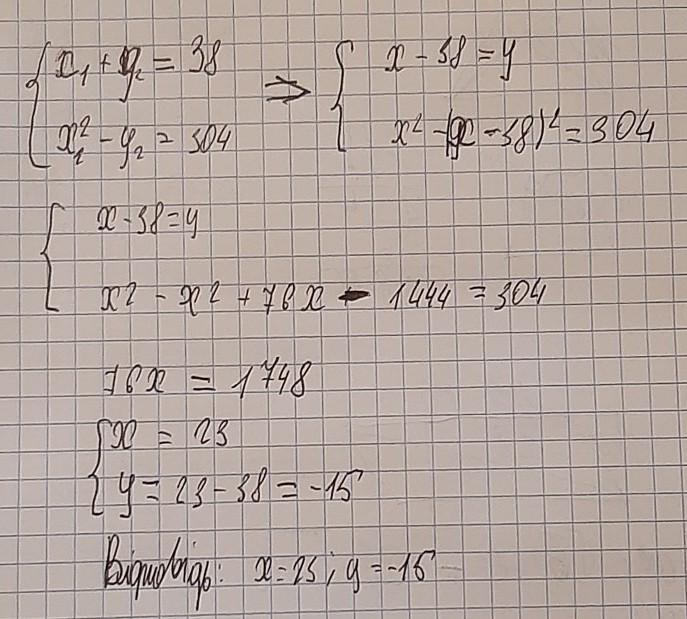 x₁ + y₂ = 38 ⇒ x - 38 = y
x₁² - y₂ = 304 x² - (x - 38)² = 304
x - 38 = y
x² - x² + 76x - 1444 = 304
76x = 1748
x = 23
y = 23 - 38 = -15
Відповідь: x = 23; y = -15